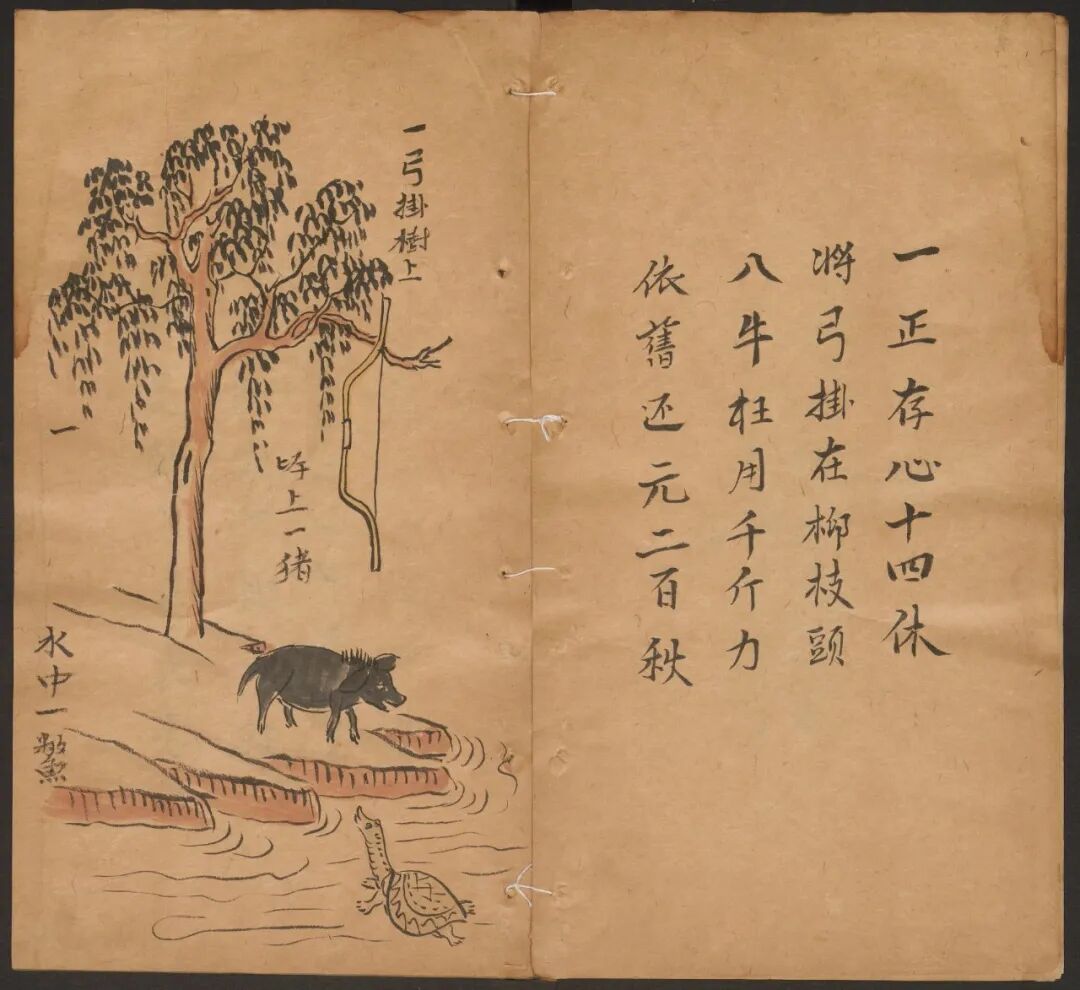 一正存心十四休
将弓掛在柳枝頭
八牛枉用千斤力
依舊还元二百秋
一弓掛樹上
岸上一猪
水中一鱉
一